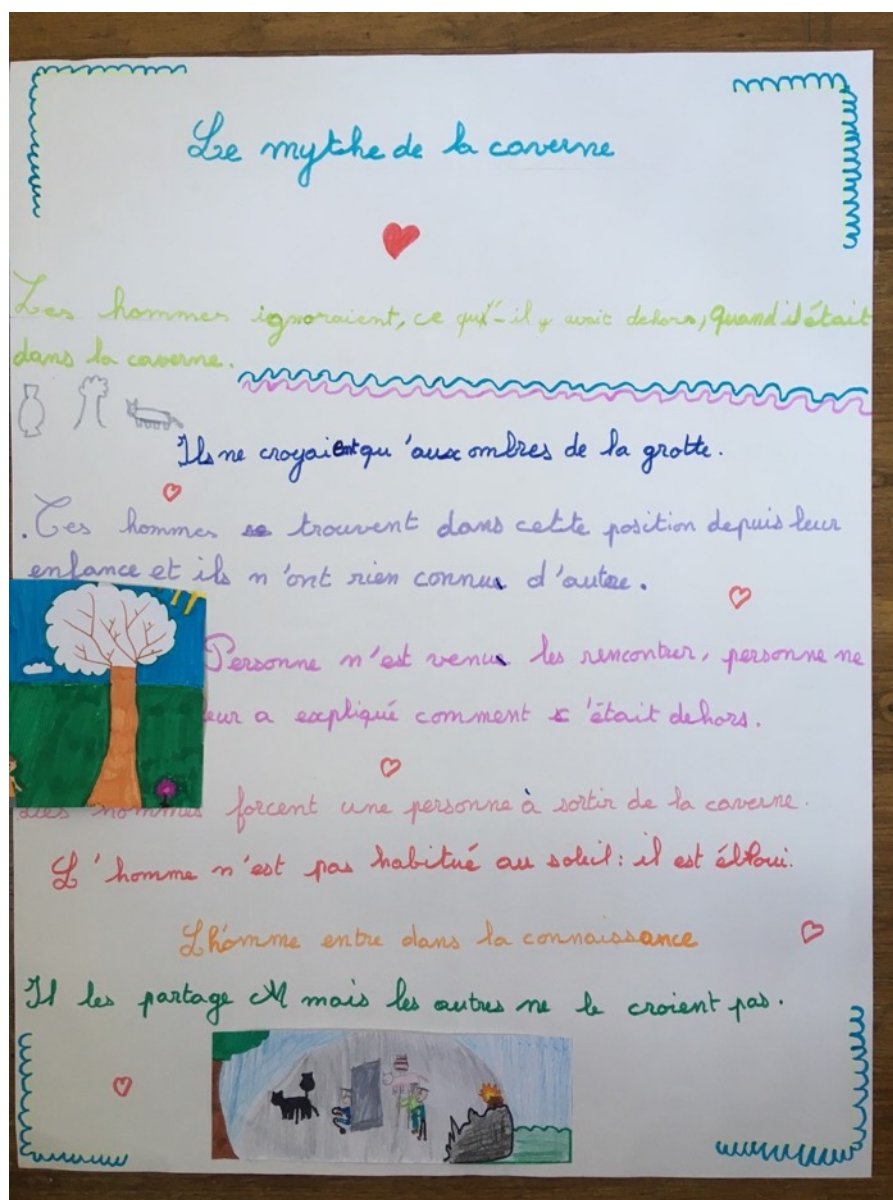 Le mythe de la caverne
Les hommes ignoraient, ce qu'il y avait dehors, quand il était
dans la caverne.
Ils ne croyaient qu'aux ombres de la grotte.
.Ces hommes se trouvent dans cette position depuis leur
enfance et ils n'ont rien connu d'autre.
Personne n'est venu les rencontrer, personne ne
leur a expliqué comment c'était dehors.
Les hommes forcent une personne à sortir de la caverne.
L'homme n'est pas habitué au soleil : il est ébloui.
L'homme entre dans la connaissance
Il les partage mais les autres ne le croient pas.